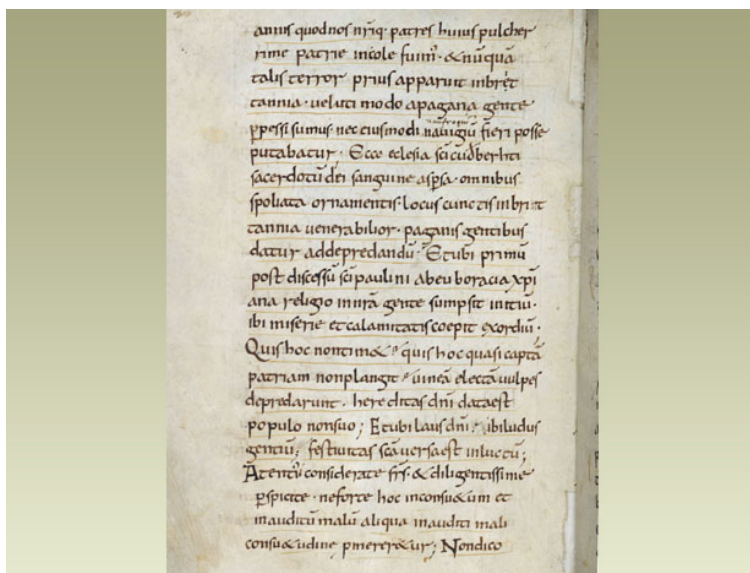 annis quod nos nr̄iq· patres huius pulcher
rime patrie incole fuim̄· & nūquā
talis terror prius apparuit in brit
tannia· ueluti modo a pagana gente
ꝑpessi sumus· nec eiusmodi nauigiū fieri posse
putabatur· Ecce eclesia sc̄i cudberhti
sacerdotū dei sanguine aspsa· omnibus
spoliata ornamentis· locus cunctis in brit
tannia uenerabilior· paganis gentibus
datur ad depredandū· Et ubi primū
post discessū sc̄i paulini ab euboracia xp̄i
ana religio in nr̄a gente sumpsit initiū·
ibi miserie et calamitatis coepit exordiū·
Quis hoc non tim&· quis hoc quasi captā
patriam non plangit· uineā electā uulpes
depredarunt· hereditas dn̄i data est
populo non suo; Et ubi laus dn̄i· ibi ludus
gentiū; festiuitas sc̄a uersa est in luctū;
Adtentius considerate fr̄s· & diligentissime
ꝑspicite· ne forte hoc inconsu&um et
inauditū malū aliqua inauditi mali
consu&udine pmerer&ur; Non dico